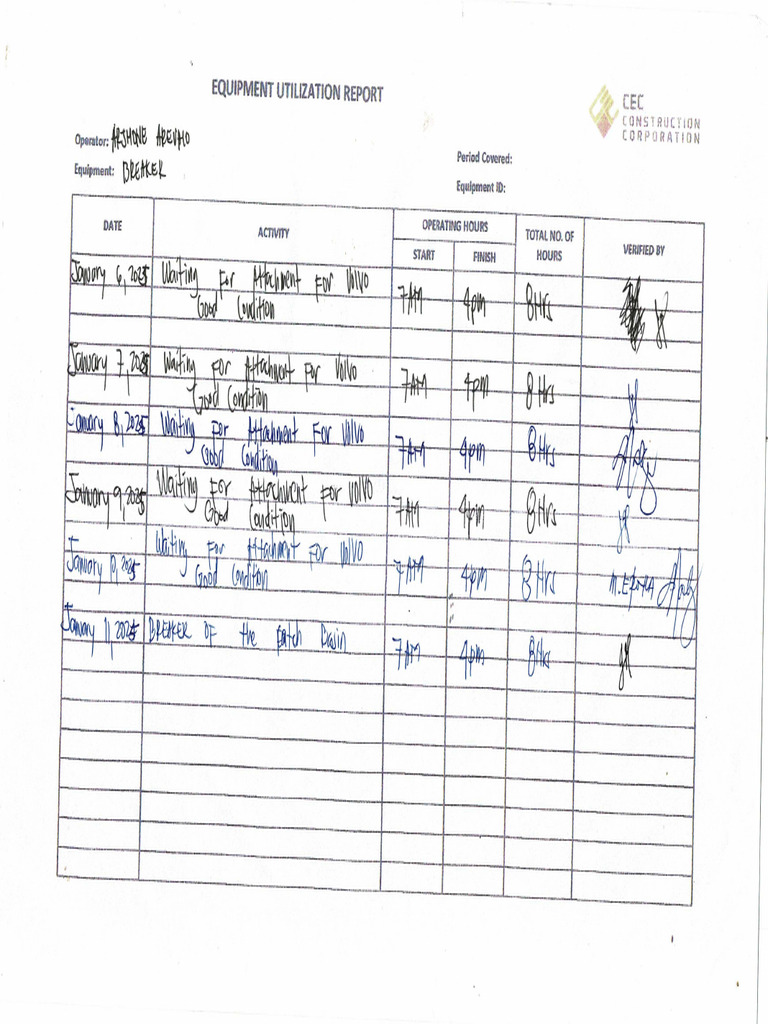 EQUIPMENT UTILIZATION REPORT
CEC
CONSTRUCTION
CORPORATION
Operator: ARJHONE AREVALO
Equipment: BREAKER
Period Covered:
Equipment ID:
DATE ACTIVITY OPERATING HOURS TOTAL NO. OF HOURS VERIFIED BY
START FINISH
January 6, 2025 Waiting For Attachment For Volvo 7AM 4pm 8Hrs
Good Condition
January 7, 2025 Waiting For Attachment For Volvo 7AM 4pm 8 Hrs
Good Condition
January 8, 2025 Waiting For Attachment For Volvo 7AM 4pm 8Hrs
Good Condition
January 9, 2025 Waiting For Attachment For Volvo 7AM 4pm 8Hrs
Good Condition
January 10, 2025 Waiting For Attachment For Volvo 7AM 4pm 8 Hrs
Good Condition
January 11, 2025 BREAKER OF the 7AM 4pm 8Hrs